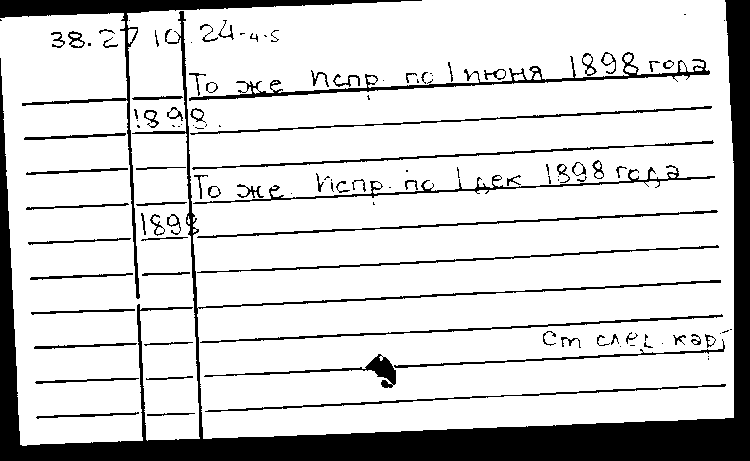 38.27 10 24-4-5
То же Испр. по 1 июня 1898 года
1898.
То же. Испр. по 1 дек 1898 года
1898
см след. карт